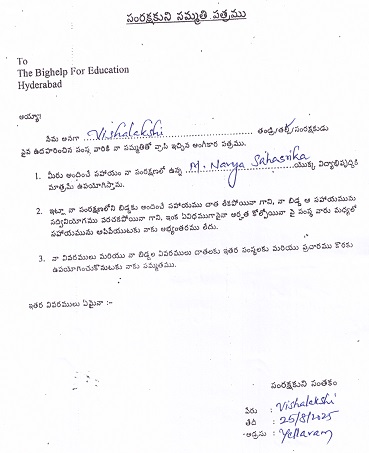 సంరక్షకుని సమ్మతి పత్రము
To
The Bighelp For Education
Hyderabad
అయ్యా!
నేను అనగా Vishalakshi తండ్రి/తల్లి/సంరక్షకుడు
పైన ఉదహరించిన సంస్థ వారికి నా సమ్మతితో వ్రాసి ఇచ్చిన అంగీకార పత్రము.
1. మీరు అందించే సహాయం నా సంరక్షణలో ఉన్న M. Navya Sahasrika యొక్క విద్యాభివృద్ధికి
మాత్రమే ఉపయోగిస్తాను.
2. ఇట్లా నా సంరక్షణలోని బిడ్డకు అందించే సహాయము దాత లేకపోయినా గాని, నా బిడ్డ ఆ సహాయమును
సద్వినియోగము పరచకపోయినా గాని, ఇంక ఏవిధముగానైనా అర్హత కోల్పోయినా పై సంస్థ వారు మధ్యలో
సహాయమును ఆపివేయుటకు నాకు అభ్యంతరము లేదు.
3. నా వివరములు మరియు నా బిడ్డల వివరములు దాతలకు ఇతర సంస్థలకు మరియు ప్రచారము కొరకు
ఉపయోగించుకొనుటకు నాకు సమ్మతము.
ఇతర వివరములు ఏమైనా :-
సంరక్షకుని సంతకం
పేరు : Vishalakshi
తేదీ : 25/8/2025
అడ్రసు : Yellaram